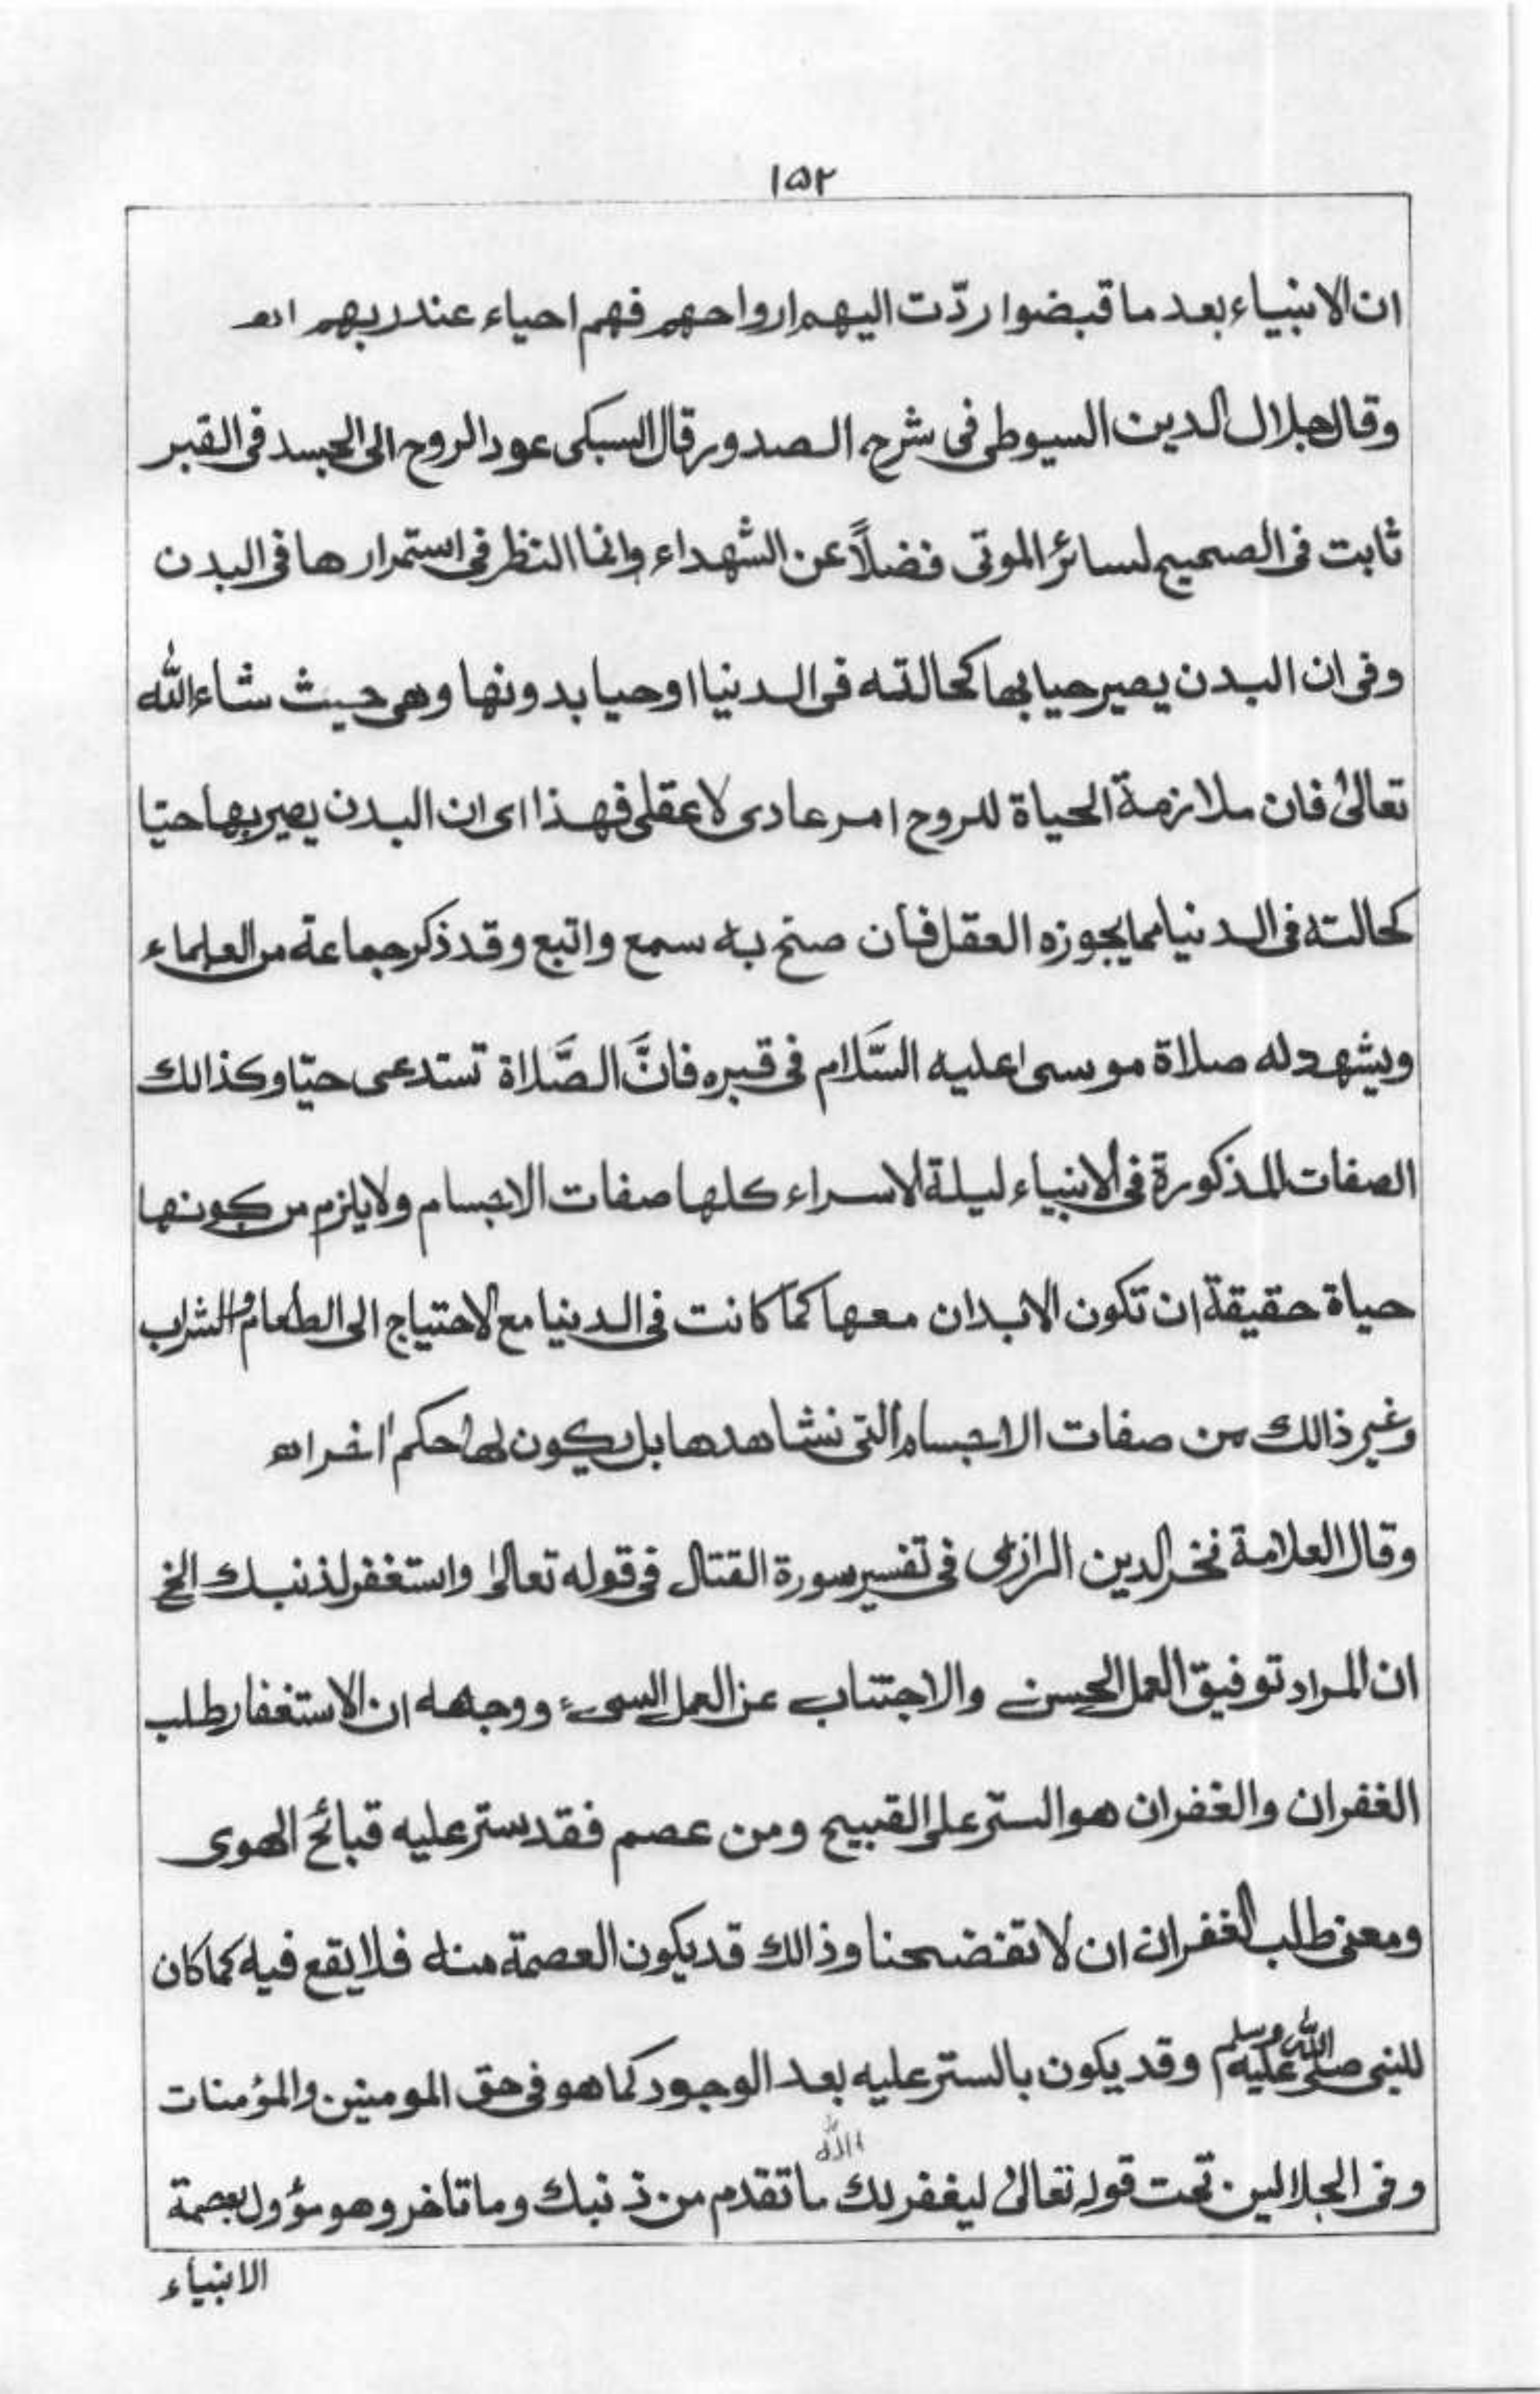 ١٥٢
ان الانبياء بعد ما قبضوا ردّت اليهم ارواحهم فهم احياء عند ربهم اﻫ
وقال جلال الدين السيوطى فى شرح الصدور قال السبكى عود الروح الى الجسد فى القبر
ثابت فى الصحيح لسائر الموتى فضلاً عن الشهداء وانما النظر فى استمرارها فى البدن
وفى ان البدن يصير حيا بها كحالته فى الدنيا او حيا بدونها وهى حيث شاء الله
تعالىٰ فان ملازمة الحياة للروح امر عادى لا عقلى فهذا اى ان البدن يصير بها حيّا
كحالته فى الدنيا مما يجوزه العقل فان صح به سمع واتبع وقد ذكر جماعة من العلماء
ويشهد له صلاة موسى عليه السَّلام فى قبره فانَّ الصَّلاة تستدعى حيّا وكذالك
الصفات المذكورة فى الانبياء ليلة الاسراء كلها صفات الاجسام ولا يلزم من كونها
حياة حقيقة ان تكون الابدان معها كما كانت فى الدنيا مع الاحتياج الى الطعام والشراب
وغير ذالك من صفات الاجسام التى نشاهدها بل يكون لها حكم اخر اﻫ
وقال العلامة فخر الدين الرازى فى تفسير سورة القتال فى قوله تعالىٰ واستغفر لذنبك الخ
ان المراد توفيق العمل الحسن والاجتناب عن العمل السىء ووجهه ان الاستغفار طلب
الغفران والغفران هو الستر على القبيح ومن عصم فقد ستر عليه قبائح الهوى
ومعنى طلب الغفران ان لا تفضحنا وذالك قد يكون العصمة منه فلا يقع فيه كما كان
للنبى صلى الله عليه وسلم وقد يكون بالستر عليه بعد الوجود كما هو فى حق المومنين والمؤمنات
وفى الجلالين تحت قوله تعالىٰ ليغفر لك الله ما تقدم من ذنبك وما تاخر وهو مؤول بعصمة
الانبياء